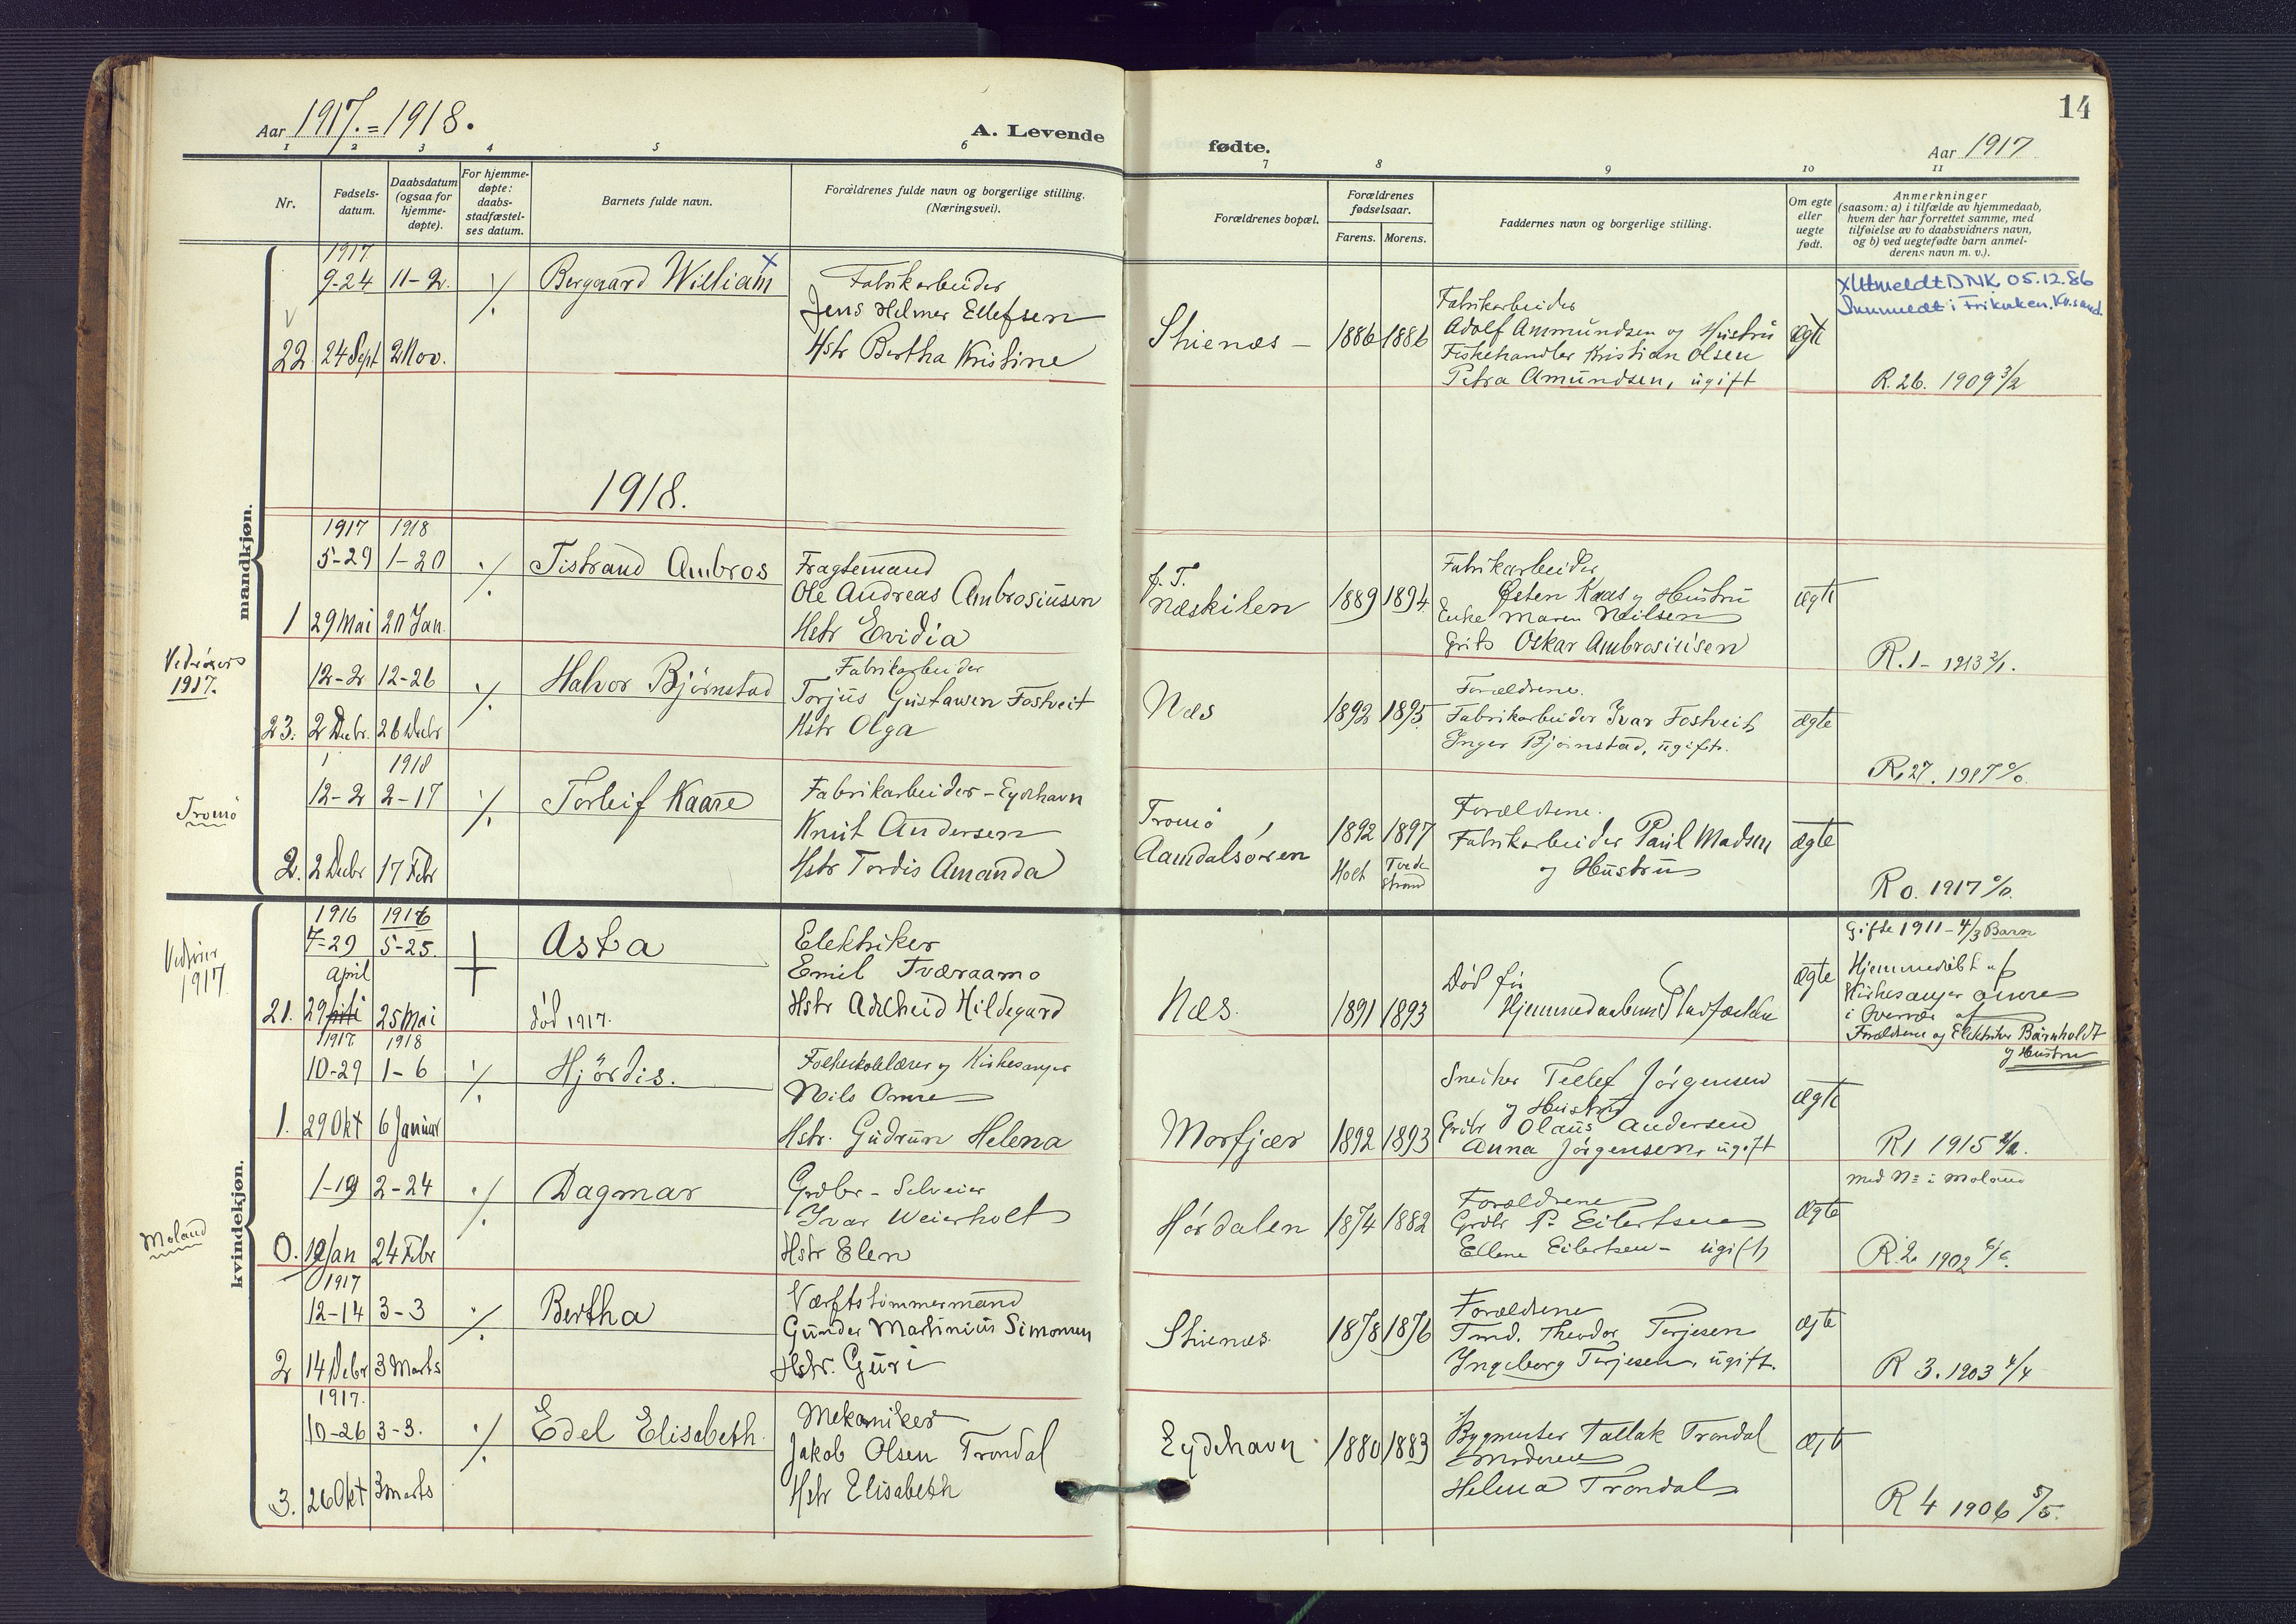 Aar 1917. = 1918.
A. Levende
fødte.
Aar 1917
14
1 2 3 4 5 6 7 8 9 10 11
Nr.
Fødsels-
datum.
Daabsdatum
(ogsaa for
hjemme-
døpte).
For hjemme-
døpte:
daabs-
stadfæstel-
ses datum.
Barnets fulde navn.
Forældrenes fulde navn og borgerlige stilling.
(Næringsvei).
Forældrenes bopæl.
Forældrenes
fødselsaar.
Farens. Morens.
Faddernes navn og borgerlige stilling.
Om egte
eller
uegte
født.
Anmerkninger
(saasom: a) i tilfælde av hjemmedaab,
hvem der har forrettet samme, med
tilføielse av to daabsvidners navn,
og b) ved uegtefødte barn anmel-
derens navn m. v.).
mandkjøn.
1917
9-24 11-2. ./. Bergaard William x
Fabrikarbeider
Jens Helmer Ellefsen
Hstr Bertha Kristine
22. 24 Sept 2 Nov.
Stienæs - 1886 1886
Fabrikarbeider
Adolf Ammundsen og Hustru
Fiskehandler Kristian Olsen
Petra Amundsen, ugift
ægte
x Utmeldt DNK 05.12.86
Innmeldt i Frikirken. Kr.sand.
R. 26. 1909 3/2
1918.
1917 1918
5-29 1-20 ./. Tistrand Ambros
Fragtemand
Ole Andreas Ambrosiusen
Hstr Evidia
1 29 Mai 20 Jan.
p. T.
Næskilen 1889 1894
Fabrikarbeider
Østen Kaas og Hustru
Enke Maren Neilsen
Grbr Oskar Ambrosiusen
ægte
R. 1 - 1913 2/1.
Vedrører
1917.
12-2 12-26 ./. Halvor Bjørnstad
Fabrikarbeider
Torjus Gustavsen Fostveit
Hstr Olga
23. 2 Decbr. 26 Decbr
Næs 1892 1895
Forældrene.
Fabrikarbeider Ivar Fostveit
Inger Bjørnstad, ugift.
ægte
R. 27. 1917 0/0.
Tromø
1918
12-2 2-17 ./. Torleif Kaare
Fabrikarbeider - Eydehavn
Knut Andersen
Hstr Tordis Amanda
2. 2 Decbr 17 Febr
Tromø,
Aamdalsøren
1892 1897
Holt Tvede
strand
Forældrene.
Fabrikarbeider Paul Madsen
og Hustru
ægte
R 0. 1917 0/0.
kvindekjøn.
Vedrører
1917
1916 1916
7-29 5-25. Asta
April
21. 29 25 Mai død 1917.
Elektriker
Emil Tværaamo
Hstr Adelheid Hildegard
Næs. 1891 1893
Død før
Hjemmedaabens Stadfæstelse
ægte
Gifte 1911 - 4/3 Barn
Hjemmedøbt af
Kirkesanger Omre
i Overvær af
Forældrene og Elektriker Barnholdt
og Hustru
1917 1918
10-29 1-6 ./. Hjördis.
Folkeskolelærer og Kirkesanger
Nils Omre
Hstr. Gudrun Helena
1. 29 Okt 6 Januar
Morfjær 1892 1893
Sneiker Tellef Jörgensen
og Hustru
Grbr Olaus Andersen
Anna Jörgensen, ugift
ægte
R 1 1915
Moland
1-19 2-24 ./. Dagmar
Grdbr - Selveier
Ivar Weierholt
Hstr Elen
0. 19 Jan 24 Febr
Hördalen 1874 1882
Forældrene
Grdbr P. Eilertsen
Ellene Eilertsen - ugift
ægte
Med No i Moland
R. 2. 1902 6/6.
1917
12-14 3-3 ./. Bertha
Værftstømmermand
Gunder Martinius Simonsen
Hstr. Guri
2 14 Debr 3 Marts
Stienæs. 1878 1876
Forældrene
Tmd. Theodor Terjesen
Ingeborg Terjesen, ugift.
ægte
R 3. 1903 4/4
1917.
10-26 3-3. ./. Edel Elisabeth.
Mekaniker
Jakob Olsen Trondal
Hstr Elisabeth
3. 26 Okt 3 marts
Eydehavn 1880 1883
Bygmester Tallak Trondal
Moderen
Helena Trondal
ægte
R 4 1906 5/5.